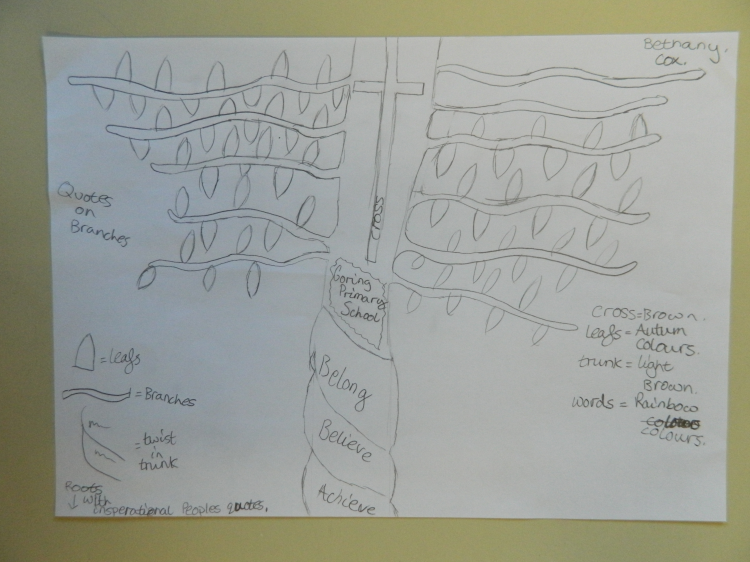 Bethany.
Cox.
Quotes
on
Branches
CROSS
Goring
Primary
School
Belong
Believe
Achieve
= Leafs
= Branches
= twist
in
trunk
Roots
↓ with
insperational Peoples quotes.
Cross=Brown.
leafs = Autum
Colours.
trunk = light
Brown.
words = Rainbow
colours.